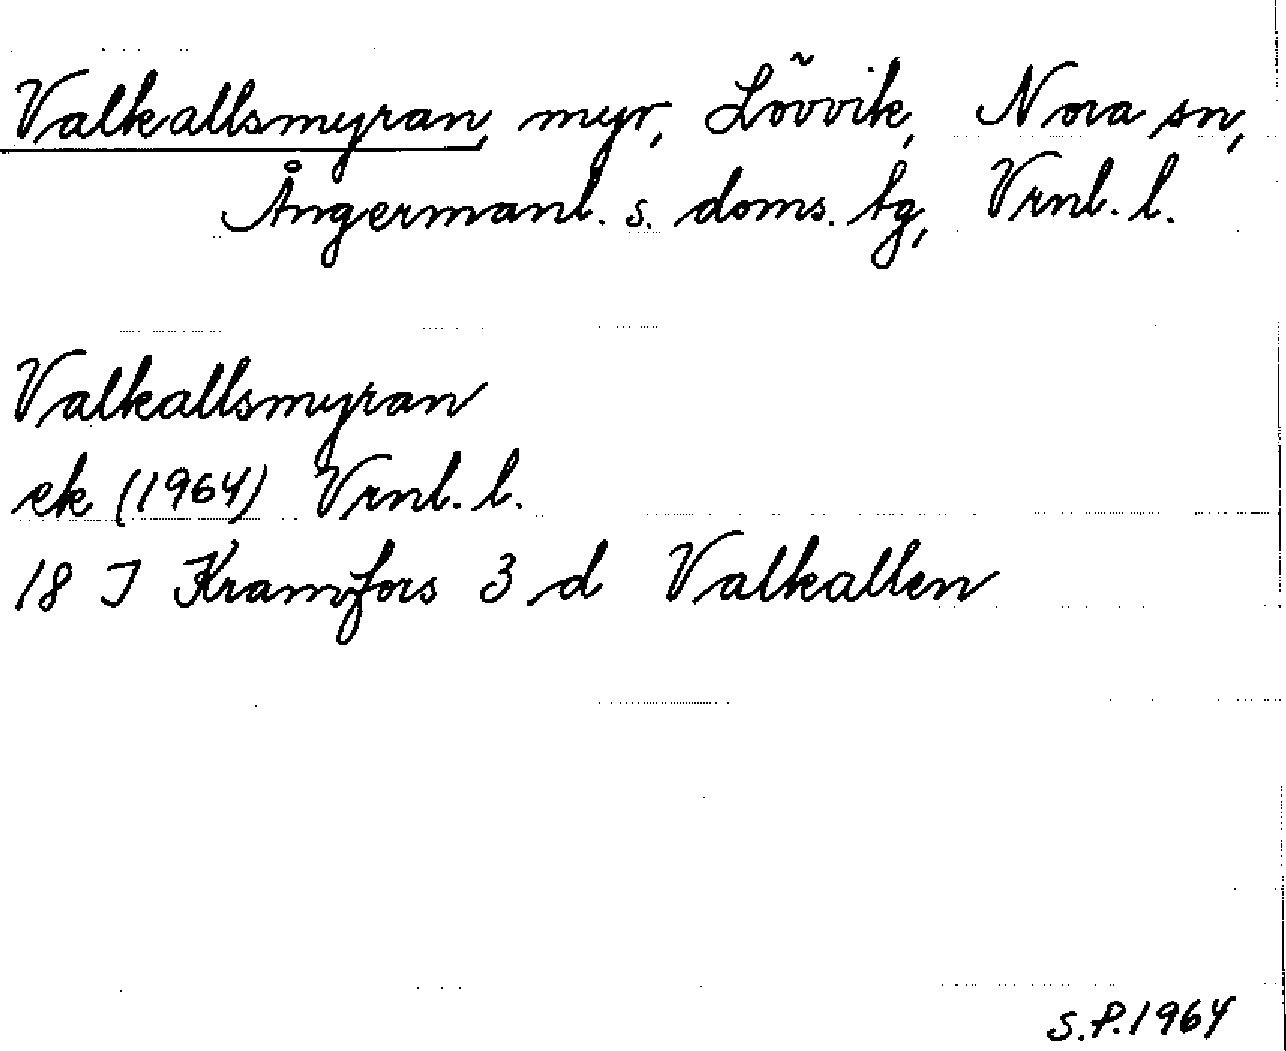 Valkallsmyran, myr, Lövvik, Nora sn,
Ångermanl. s. doms. tg, Vrnl. l.
Valkallsmyran
ek (1964) Vrnl. l.
18 I Kramfors 3 d Valkallen
S.P. 1964